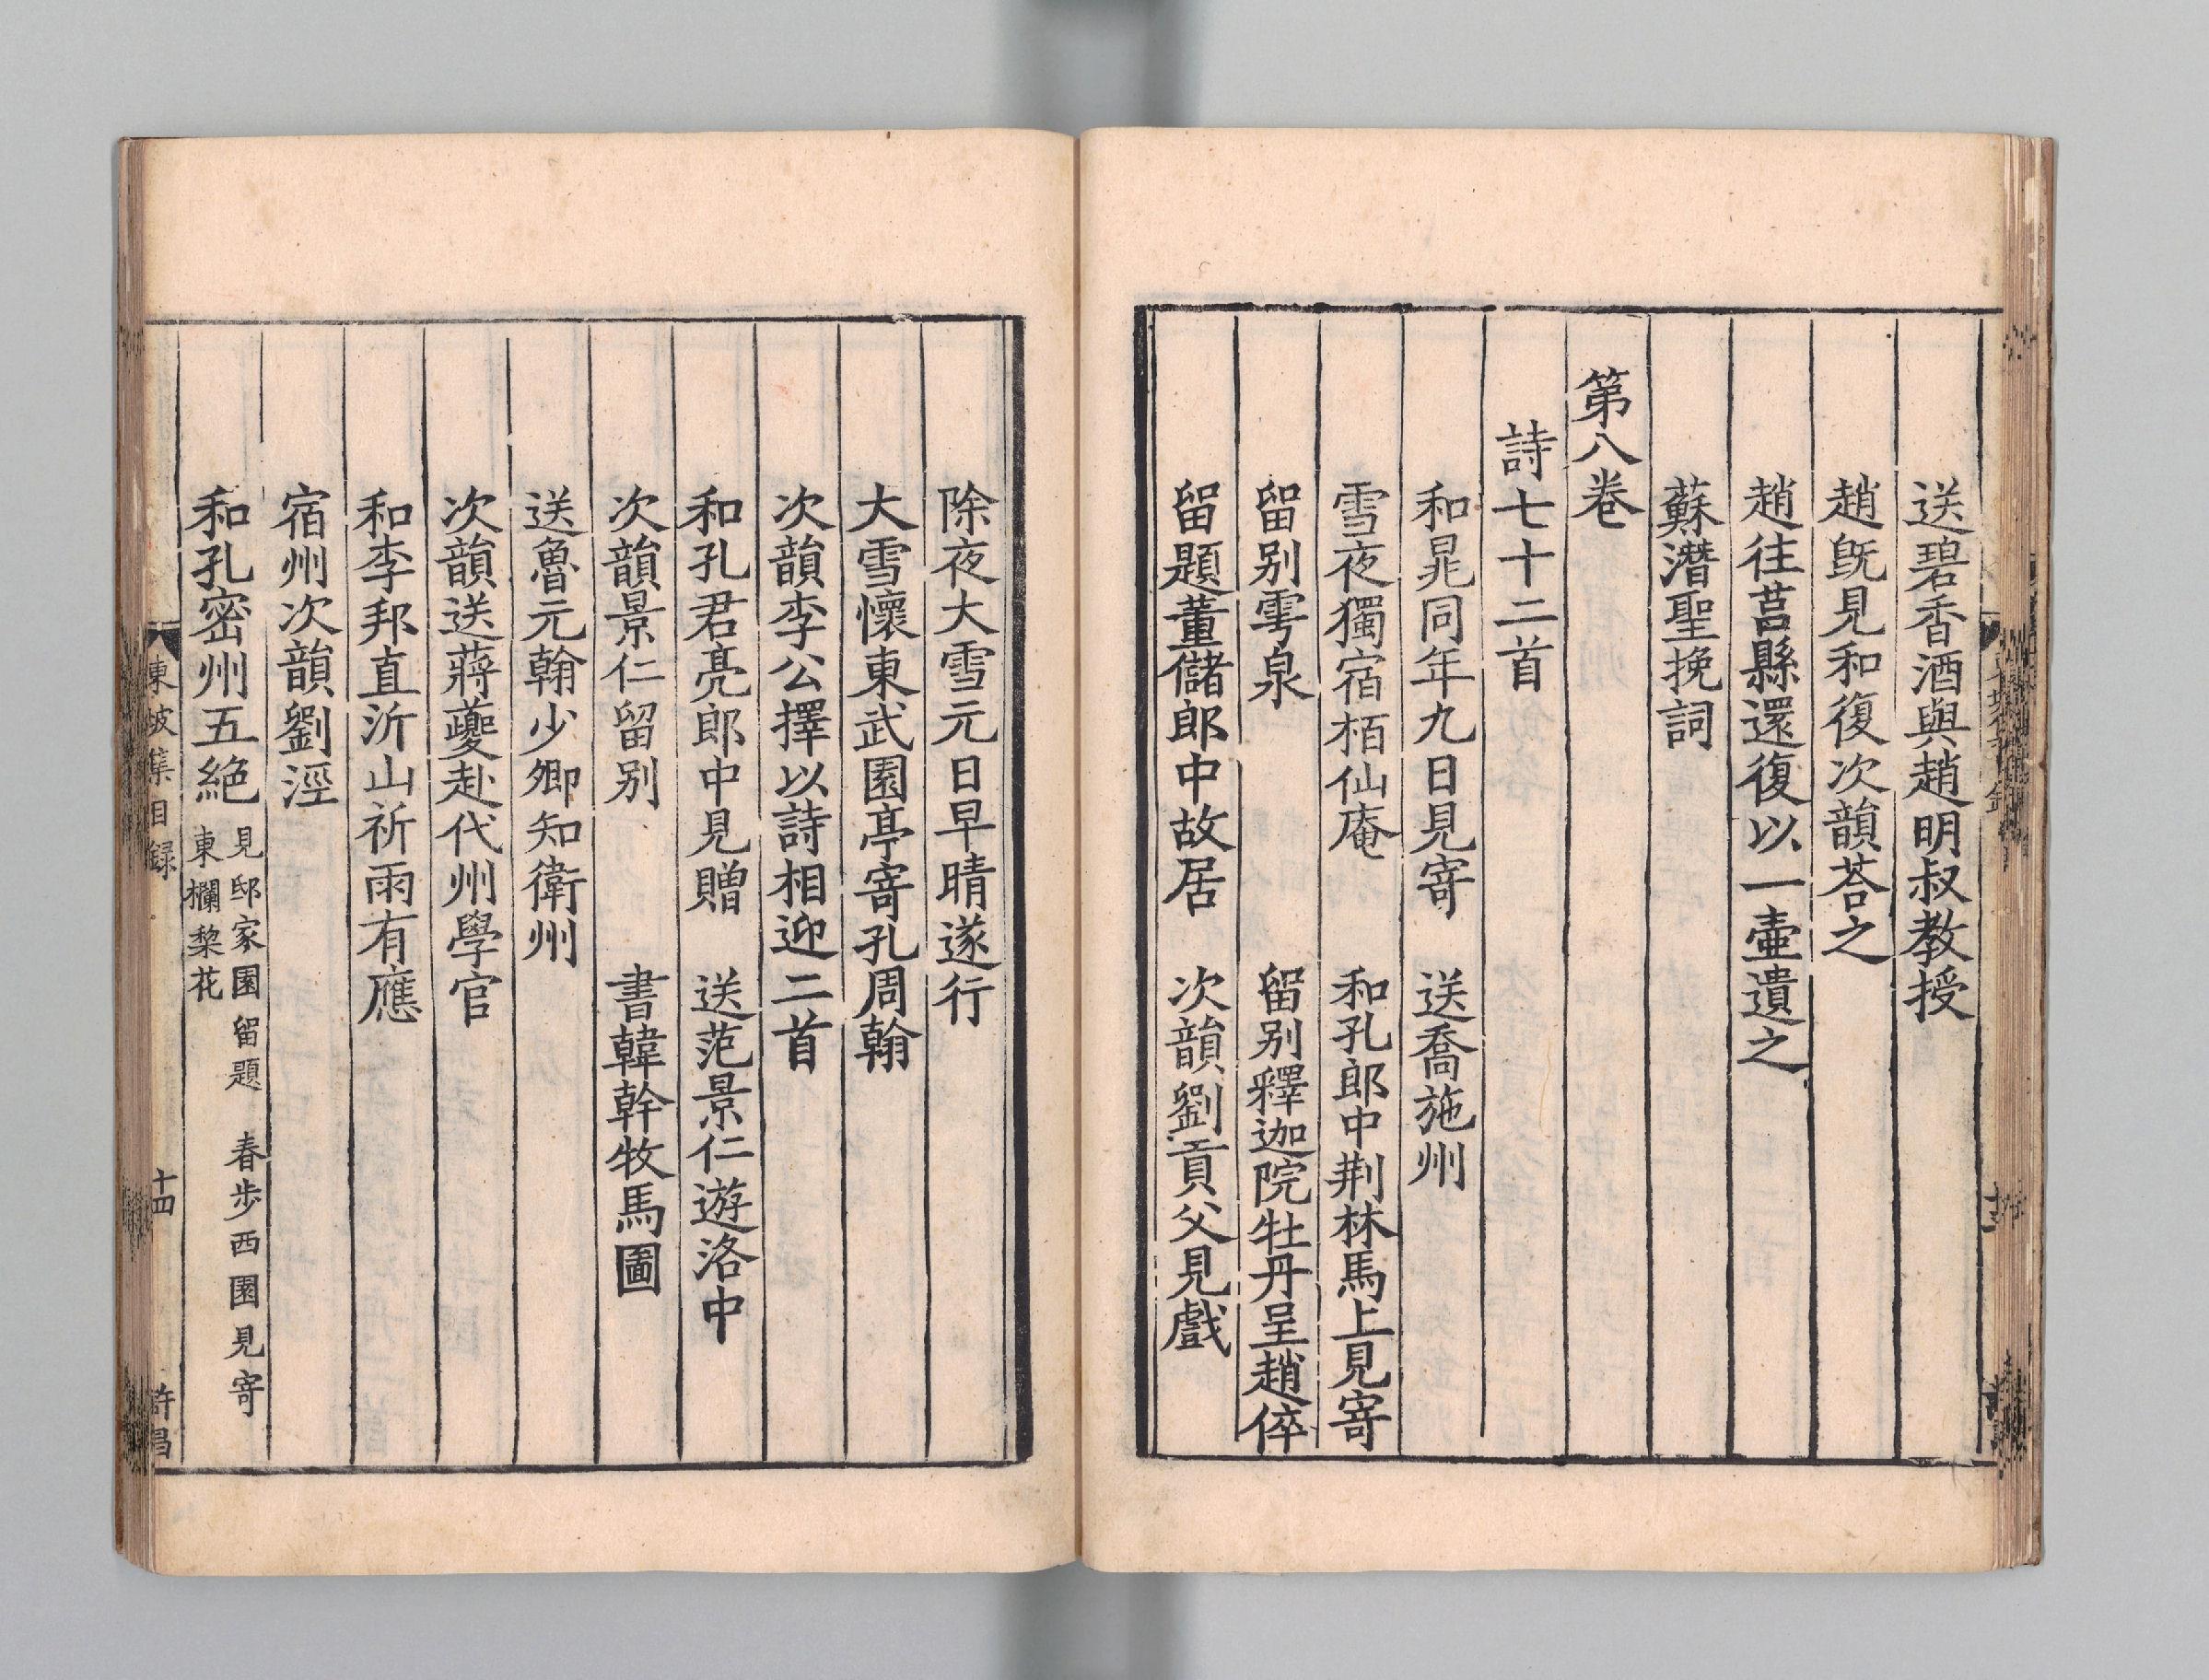 送碧香酒與趙明叔教授
趙旣見和復次韻荅之
趙往莒縣還復以一壷遺之
蘇潛聖挽詞
第八卷
詩七十二首
和晁同年九日見寄　送喬施州
雪夜獨宿栢仙庵　和孔郎中荆林馬上見寄
留別雩泉　留別釋迦院牡丹呈趙倅
留題董儲郎中故居　次韻劉貢父見戲
除夜大雪元日早晴遂行
大雪懷東武園亭寄孔周翰
次韻李公擇以詩相迎二首
和孔君亮郎中見贈　送范景仁遊洛中
次韻景仁留別　書韓幹牧馬圖
送魯元翰少卿知衛州
次韻送蔣夔赴代州學官
和李邦直沂山祈雨有應
宿州次韻劉涇
和孔密州五絕　見邸家園留題　春步西園見寄
東欄梨花
東坡集目録　十四　許昌